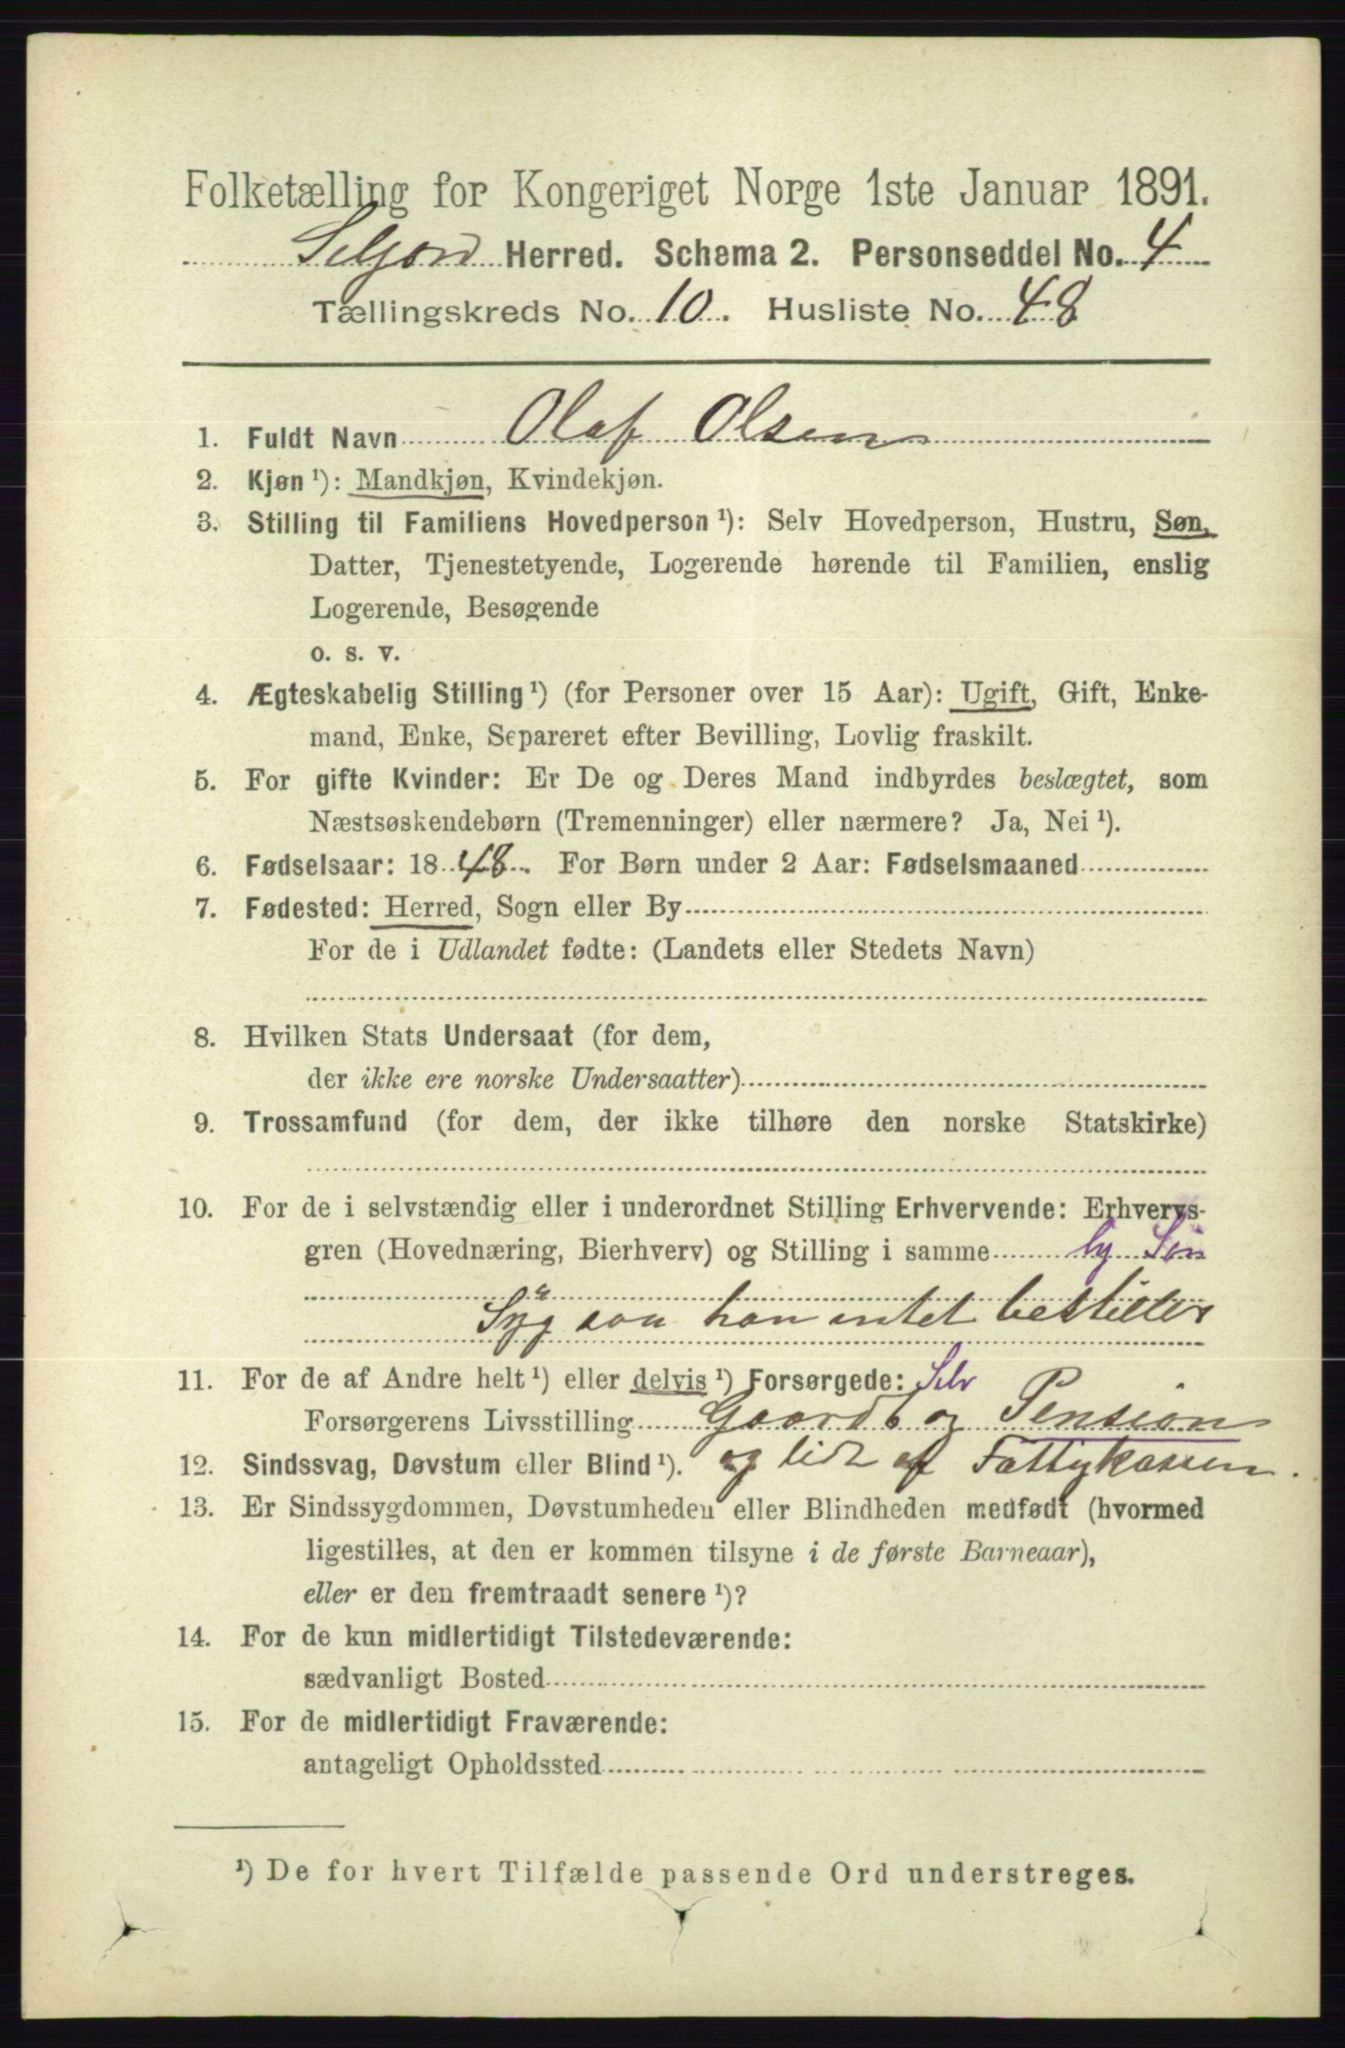 Folketælling for Kongeriget Norge 1ste Januar 1891.
Seljord Herred. Schema 2. Personseddel No. 4
Tællingskreds No. 10. Husliste No. 48
1. Fuldt Navn Olaf Olsen
2. Kjøn ¹): Mandkjøn, Kvindekjøn.
3. Stilling til Familiens Hovedperson ¹): Selv Hovedperson, Hustru, Søn,
Datter, Tjenestetyende, Logerende hørende til Familien, enslig
Logerende, Besøgende
o. s. v.
4. Ægteskabelig Stilling ¹) (for Personer over 15 Aar): Ugift, Gift, Enke-
mand, Enke, Separeret efter Bevilling, Lovlig fraskilt.
5. For gifte Kvinder: Er De og Deres Mand indbyrdes beslægtet, som
Næstsøskendebørn (Tremenninger) eller nærmere? Ja, Nei ¹).
6. Fødselsaar: 1848. For Børn under 2 Aar: Fødselsmaaned
7. Fødested: Herred, Sogn eller By
For de i Udlandet fødte: (Landets eller Stedets Navn)
8. Hvilken Stats Undersaat (for dem,
der ikke ere norske Undersaatter)
9. Trossamfund (for dem, der ikke tilhøre den norske Statskirke)
10. For de i selvstændig eller i underordnet Stilling Erhvervende: Erhvervs-
gren (Hovednæring, Bierhverv) og Stilling i samme
Syg saa han intet bestiller
11. For de af Andre helt ¹) eller delvis ¹) Forsørgede: Selv
Forsørgerens Livsstilling Gaardb og Pension
12. Sindssvag, Døvstum eller Blind ¹). og lidt af Fattigkassen.
13. Er Sindssygdommen, Døvstumheden eller Blindheden medfødt (hvormed
ligestilles, at den er kommen tilsyne i de første Barneaar),
eller er den fremtraadt senere ¹)?
14. For de kun midlertidigt Tilstedeværende:
sædvanligt Bosted
15. For de midlertidigt Fraværende:
antageligt Opholdssted
¹) De for hvert Tilfælde passende Ord understreges.